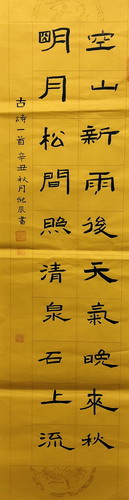 空山新雨後天氣晚來秋
明月松間照清泉石上流
古詩一首辛丑秋月
書